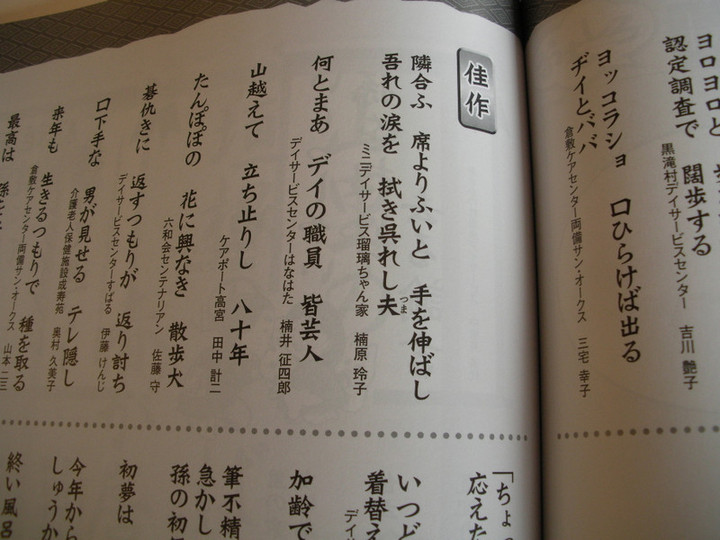 ヨロヨロと
認定調査で 闊歩する
黒滝村デイサービスセンター 吉川 艶子
ヨッコラショ 口ひらけば出る
ヂイとババ
倉敷ケアセンター両備サン・オークス 三宅 幸子
佳作
隣合ふ 席よりふいと 手を伸ばし
吾れの涙を 拭き呉れし夫
つま
ミニデイサービス瑠璃ちゃん家 楠原 玲子
何とまあ デイの職員 皆芸人
デイサービスセンターはなはた 楠井 征四郎
山越えて 立ち止りし 八十年
ケアポート高宮 田中 計二
たんぽぽの 花に興なき 散歩犬
六和会センテナリアン 佐藤 守
碁仇きに 返すつもりが 返り討ち
デイサービスセンターすばる 伊藤 けんじ
口下手な 男が見せる テレ隠し
介護老人保健施設成寿苑 奥村 久美子
来年も 生きるつもりで 種を取る
倉敷ケアセンター両備サン・オークス 山本 二三
最高は
「ちょっ
応えた
いつど
着替え
デイ
加齢で
筆不精
急かし
孫の初
初夢は
今年から
しゅうか
終い風呂